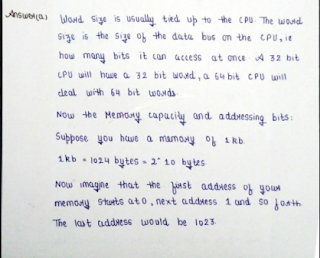 Answer(a) Word size is usually tied up to the CPU. The word
size is the size of the data bus on the CPU, ie
how many bits it can access at once. A 32 bit
CPU will have a 32 bit word, a 64 bit CPU will
deal with 64 bit words.
Now the Memory capacity and addressing bits:
Suppose you have a memory of 1 kb.
1 kb = 1024 bytes = 2^10 bytes.
Now imagine that the first address of your
memory starts at 0, next address 1 and so forth.
The last address would be 1023.